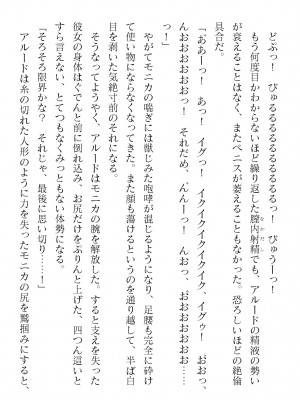 どぷっ！　びゅるるるるるるるるるーっ！
もう何度目かわからないほど繰り返した膣内射精でも、アルードの精液の勢い
が衰えることはなく、またペニスが萎えることがなかった。恐ろしいほどの絶倫
具合だ。
「おおーっ！　あっ！　イグっ！　イクイクイクイクイク、イグゥ！　おおっ、
んおおおおおおっ！　それだめ、んんーっ！　んおっ、おおおおおおおおおお
っ！」
やがてモニカの喘ぎには獣じみた咆哮が混じるようになり、足腰も完全に砕け
て使い物にならなくなってきた。また顔も蕩けるというのを通り越して、半ば白
目を剥いた気絶寸前のそれになる。
そうなってようやく、アルードはモニカの腕を解放した。すると支えを失った
彼女の身体はぐでんと前に倒れ込み、お尻だけをぷりんと上げた、四つん這いと
すら言えない、とてつもなくみっともない体勢になる。
「そろそろ限界かな？　それじゃ、最後に思い切り……！」
アルードは糸の切れた人形のように力を失ったモニカの尻を鷲掴みにすると、